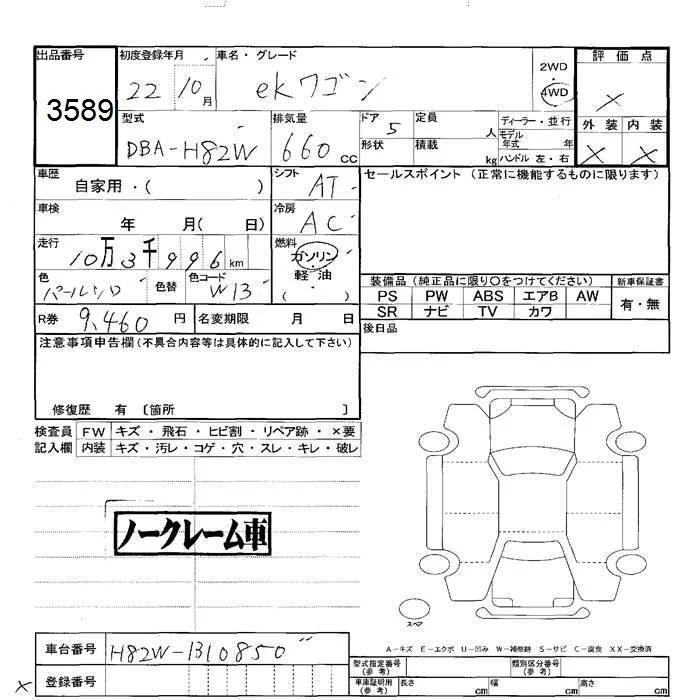 出品番号 初度登録年月 車名・グレード 2WD ・ 4WD 評価点
3589 22 10月 ekワゴン ×
型式 排気量 ドア 定員 ディーラー・並行 外装 内装
DBA-H82W 660 CC 5 人 モデル年式 年 × ×
形状 積載 kg ハンドル 左・右
車歴 自家用・( ) シフト AT セールスポイント (正常に機能するものに限ります)
車検 年 月( 日) 冷房 AC
走行 10万3千996 km 燃料 ガソリン 軽油 ( )
色 パールシロ 色替 色コード W13
装備品 (純正品に限り○をつけてください) 新車保証書
PS PW ABS エアB AW 有・無
SR ナビ TV カワ
R券 9,460 円 名変期限 月 日 後日品
注意事項申告欄(不具合内容等は具体的に記入して下さい)
修復歴 有 〔箇所 〕
検査員 FW キズ・飛石・ヒビ割・リペア跡・×要
記入欄 内装 キズ・汚レ・コゲ・穴・スレ・キレ・破レ
ノークレーム車
スペア
A-キズ E-エクボ U-凹み W-補修跡 S-サビ C-腐食 XX-交換済
車台番号 H82W-1310850
型式指定番号 (参考) 類別区分番号 (参考)
× 登録番号
車庫証明用 (参考) 長さ cm 幅 cm 高さ cm